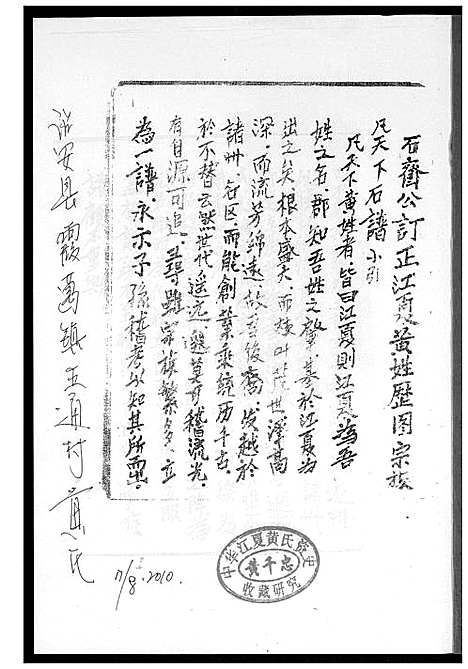 石齋公訂正江夏黃姓歷困宗族
凡天下石譜小引
凡天下黃姓者皆曰江夏則江夏為吾
姓之名郡知吾姓之肇基於江夏為
出之矣根本盛大而枝叶茂世澤高
深而流芳綿遠故至後裔发越於
諸州各区而能創業永統历千古
於不替云然世代遥远邈莫可稽流光
有自源可追尋雖宗族繁多立
為一譜永示子孫稽考以知其所出
诏安县霞葛镇五通村黄氏
17/8.2010.
中华江夏黄氏资史
黄千忠
收藏研究